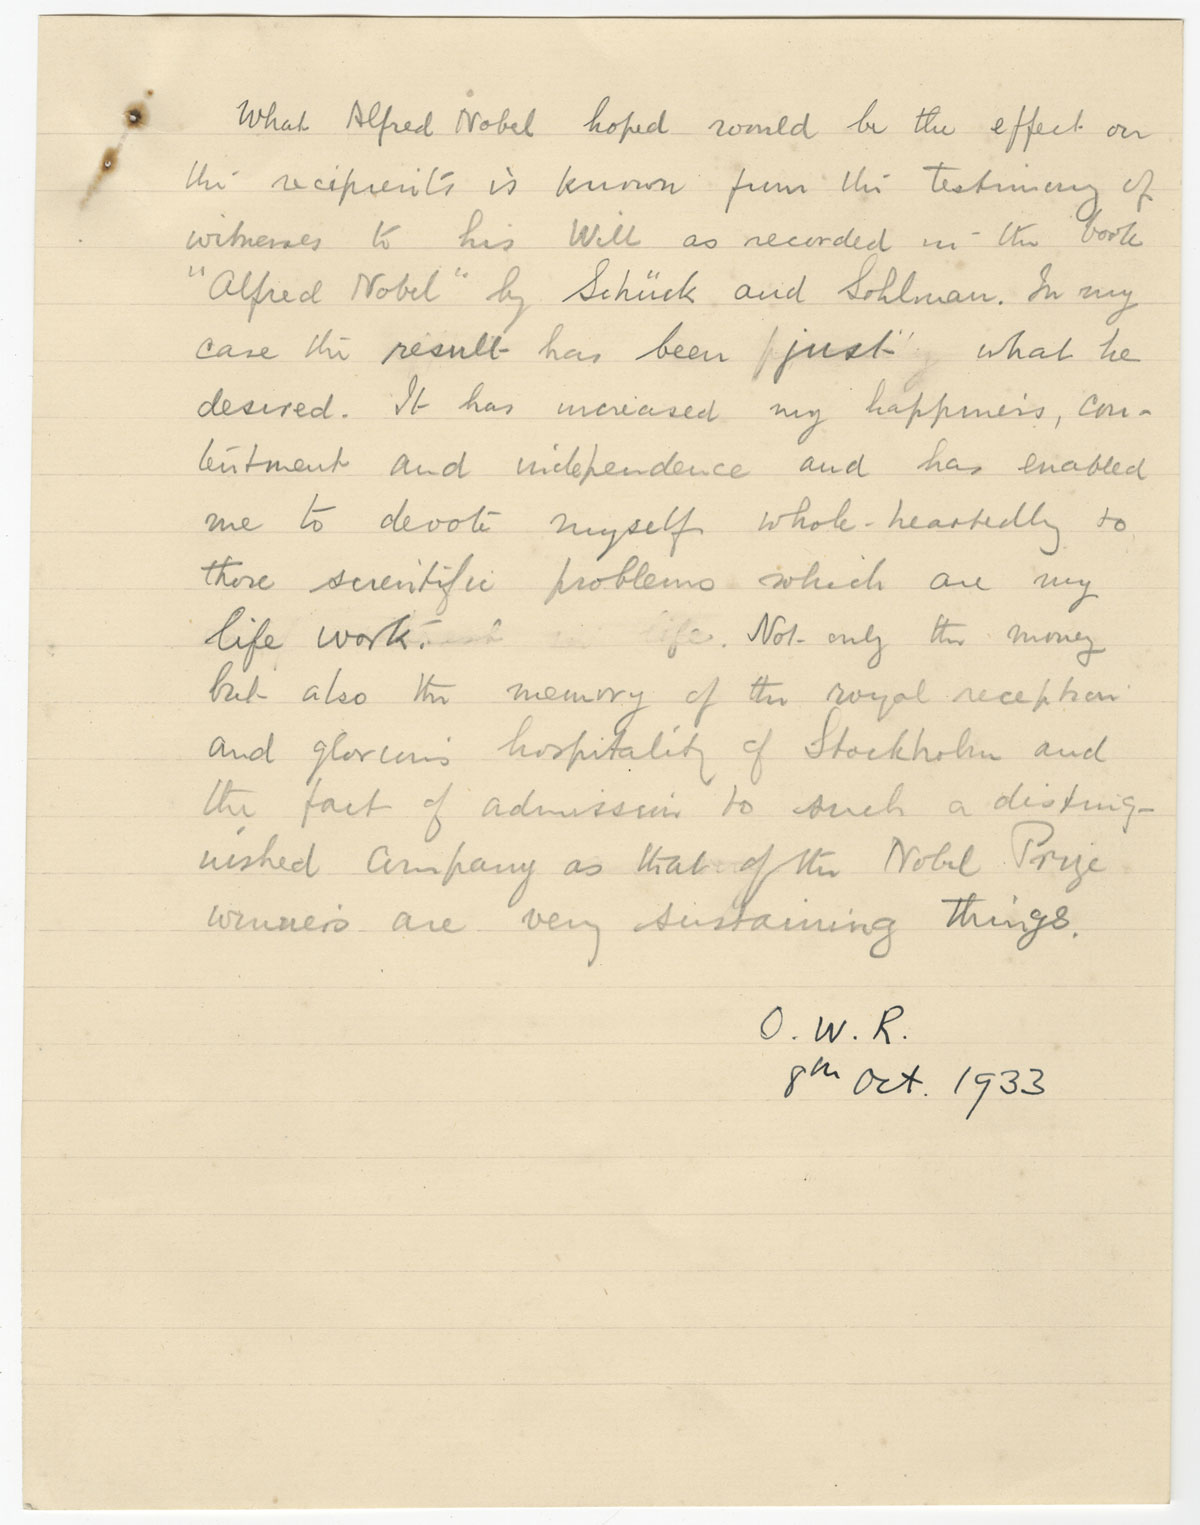 What Alfred Nobel hoped would be the effect on
the recipients is known from the testimony of
witnesses to his Will as recorded in the book
"Alfred Nobel" by Schück and Sohlman. In my
case the result has been just what he
desired. It has increased my happiness, con-
tentment and independence and has enabled
me to devote myself whole-heartedly to
those scientific problems which are my
life work. Not only the money
but also the memory of the royal reception
and glorious hospitality of Stockholm and
the fact of admission to such a disting-
uished company as that of the Nobel Prize
winners are very sustaining things.
O. W. R.
8th Oct. 1933